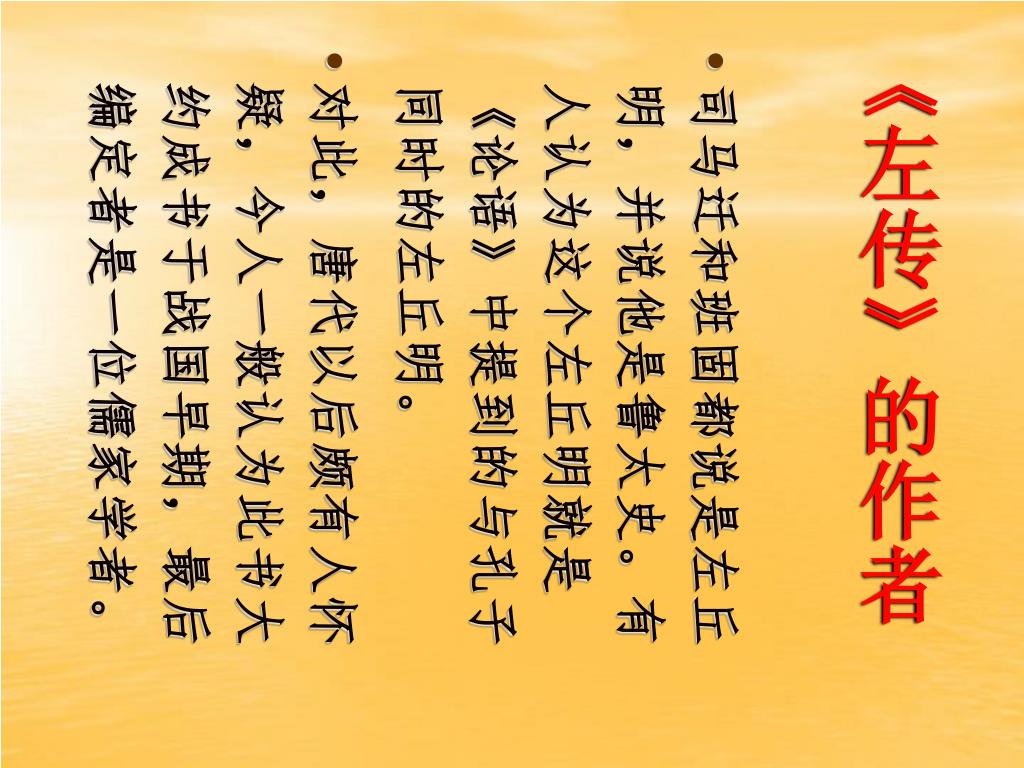 《左传》的作者
• 司马迁和班固都说是左丘
明，并说他是鲁太史。有
人认为这个左丘明就是
《论语》中提到的与孔子
同时的左丘明。
• 对此，唐代以后颇有人怀
疑，今人一般认为此书大
约成书于战国早期，最后
编定者是一位儒家学者。